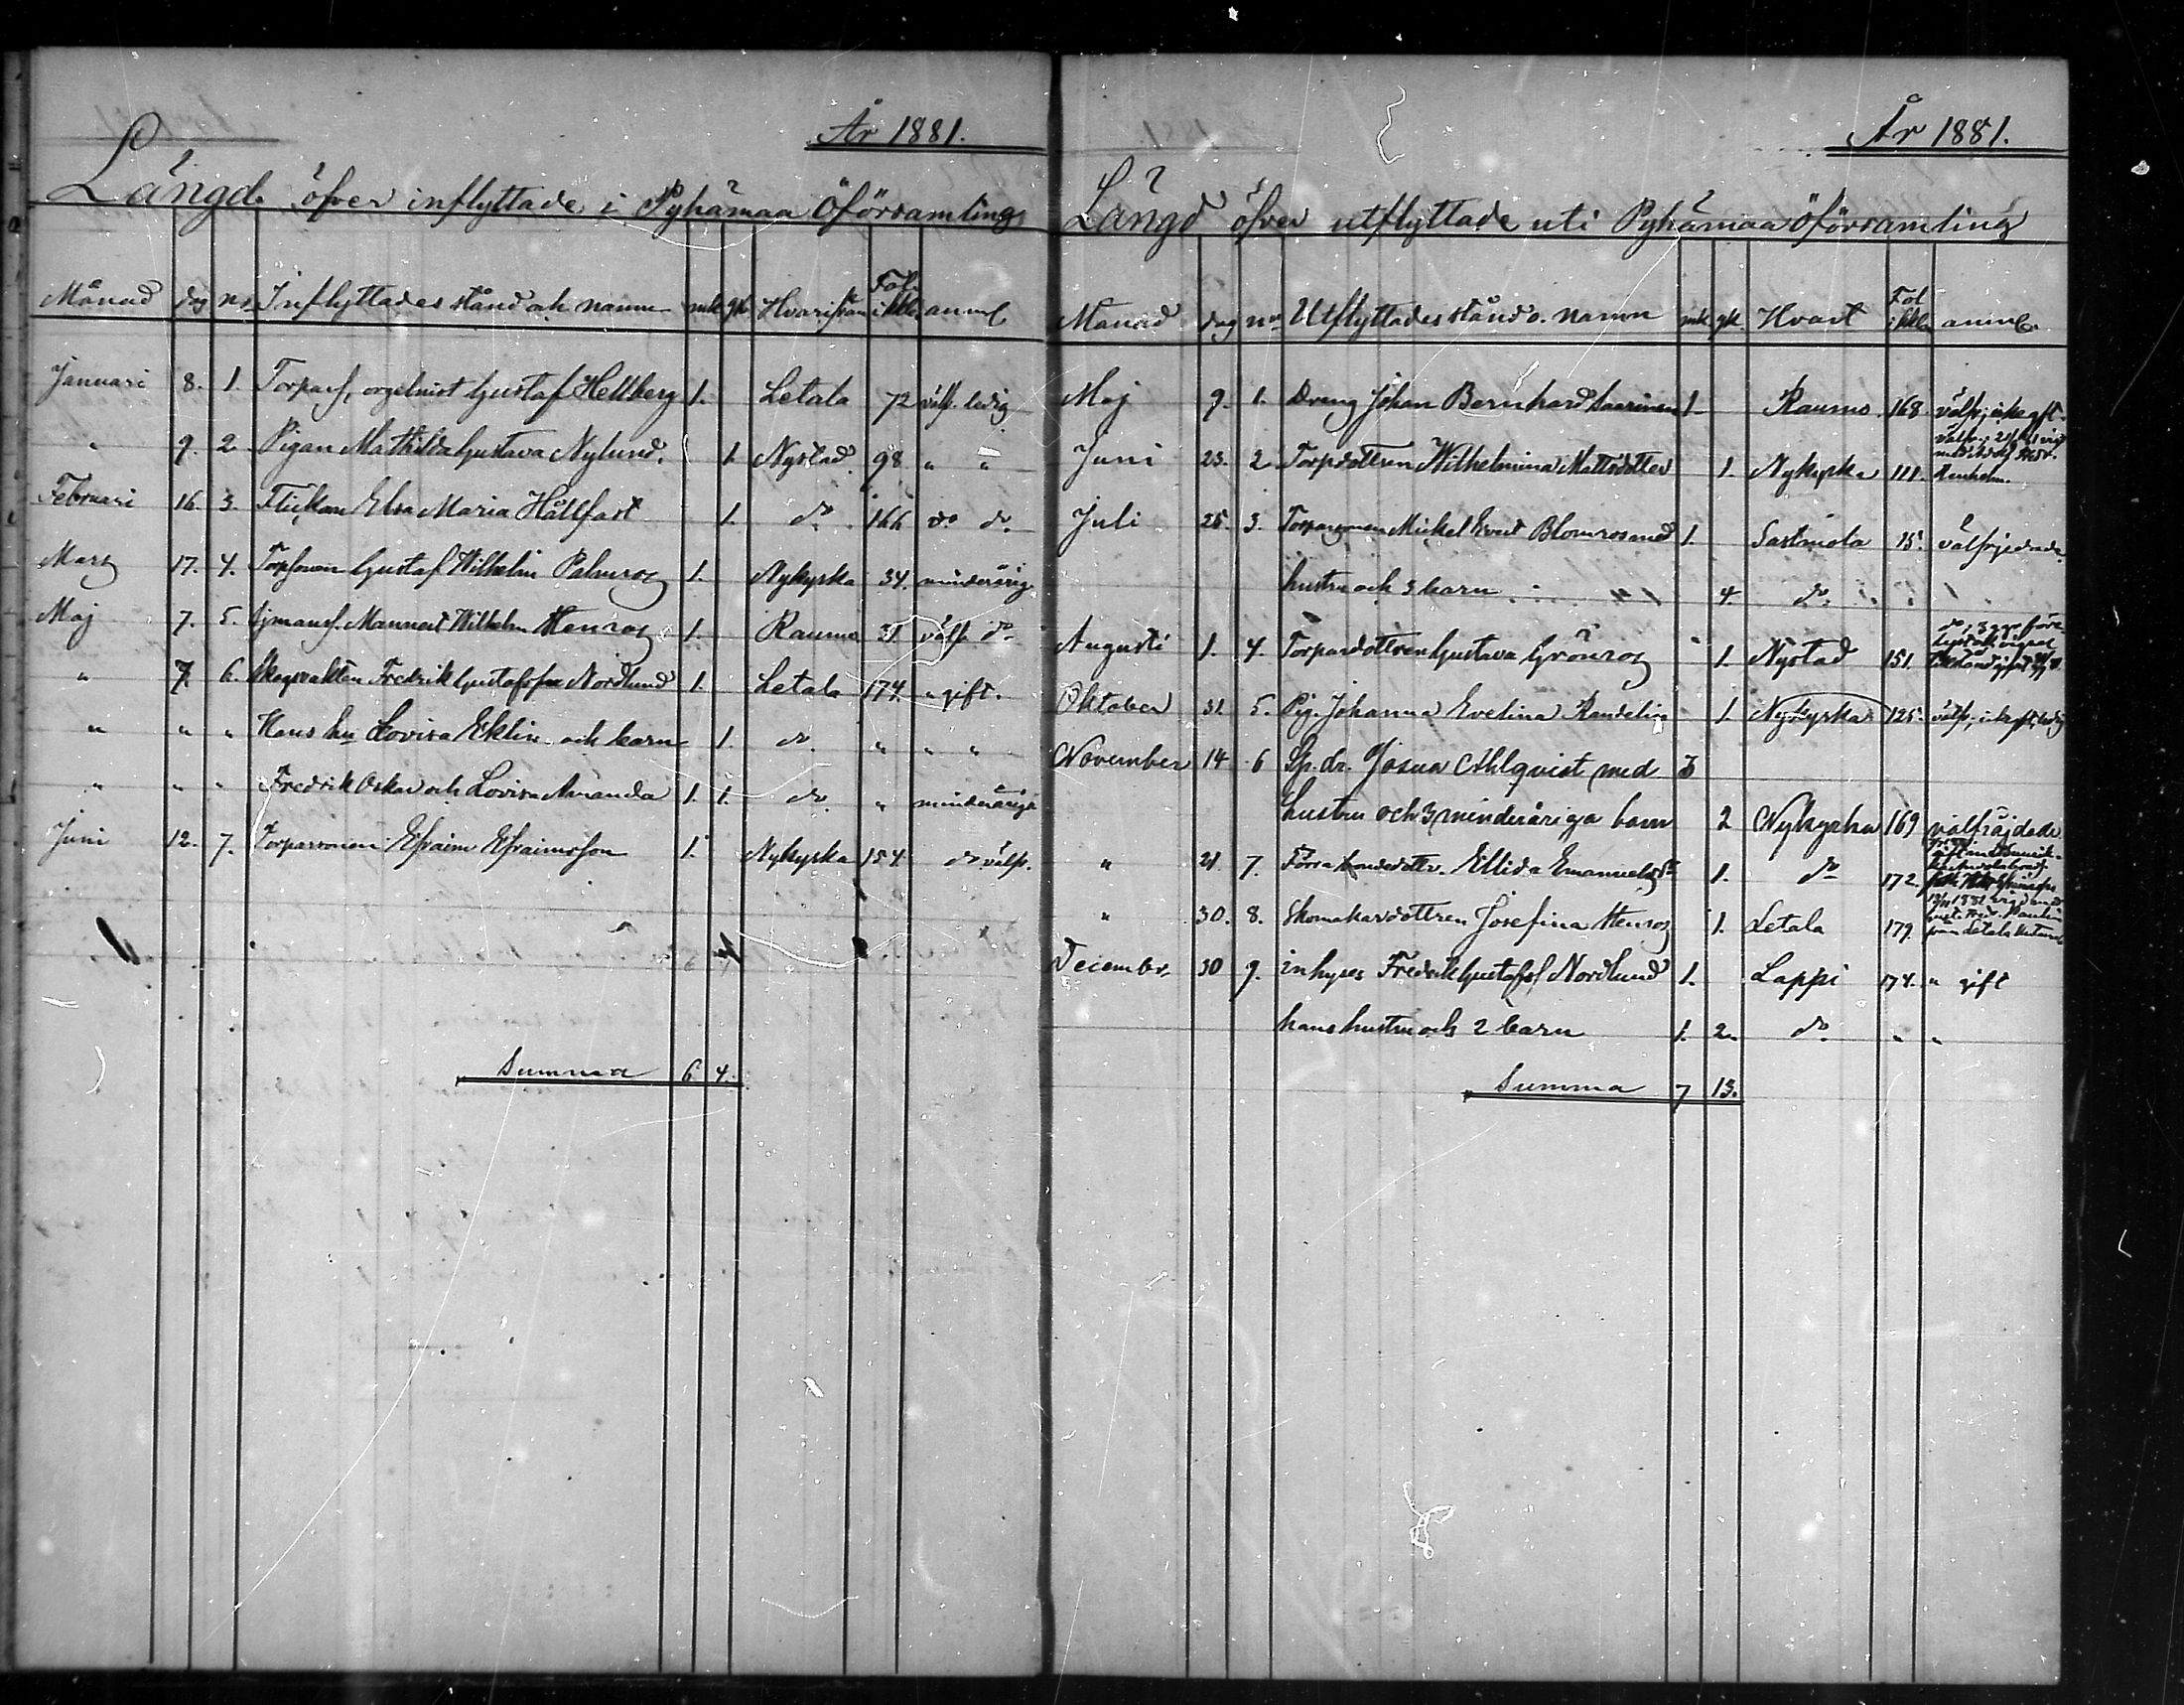 År 1881.
Längd öfver inflyttade i Pyhämaa Öförsamling
Månad dag no Inflyttades stånd och namn mk qk Hvarifrån Fol. i kkb. anmk
Januari 8. 1. Gustaf Hellberg 1. Letala 72 välfr. ledig
" 9. 2. Pigan Mathilda Gustava Nylund. 1. Nystad 98 " "
Februari 16. 3. Flickan Elsa Maria Hållfast 1. do 166 do do
Mars 17. 4. Torpsonen Gustaf Wilhelm Palmros 1. Nykyrka 34. minderårig
Maj 7. 5. Wilhelm Henros 1. Raumo 31 välfr. do
" 7. 6. Skogvakten Fredrik Gustafsson Nordlund 1. Letala 174. " gift.
" " " Hans hu Lovisa Eklin och barn 1. do. " " "
" " " Fredrik Oskar och Lovisa Amanda 1. 1. do. " minderåriga
Juni 12. 7. Torparsonen Efraim Efraimsson 1. Nykyrka 154. do välfr.
Summa 6. 4.
År 1881.
Längd öfver utflyttade uti Pyhämaa Öförsamling
Månad dag no Utflyttades stånd o. namn mk qk Hvart Fol i kkb anmk.
Maj 9. 1. Dreng Johan Bernhard Saarinen 1. Raumo 168 välfr., icke gft.
Juni 23. 2. Torpdottren Wilhelmina Mattsdotter 1. Nykyrka 111.
Juli 25. 3. Torparsonen Mickel Evert Blomros med 1. Sastmola 15. välfrejdade.
hustru och 3 barn 4. do.
Augusti 1. 4. Torpardottren Gustava Grönros 1. Nystad 151.
Oktober 31. 5. Pig. Johanna Evelina Randelin 1. Nykyrka 125. välfr., ledig
November 14 6 Sp. dr. Josua Ahlqvist med 3
hustru och 3 minderåriga barn 2 Nykyrka 169 välfräjdade
" 21. 7. Ellida Emanuelsdr 1. do 172.
" 30. 8. Skomakardottren Josefina Henros 1. Letala 179. från Letala
December 30 9. inhyses Fredrik Gustafss. Nordlund 1. Lappi 174. " gift
hans hustru och 2 barn 1. 2. do. " "
Summa 7 13.